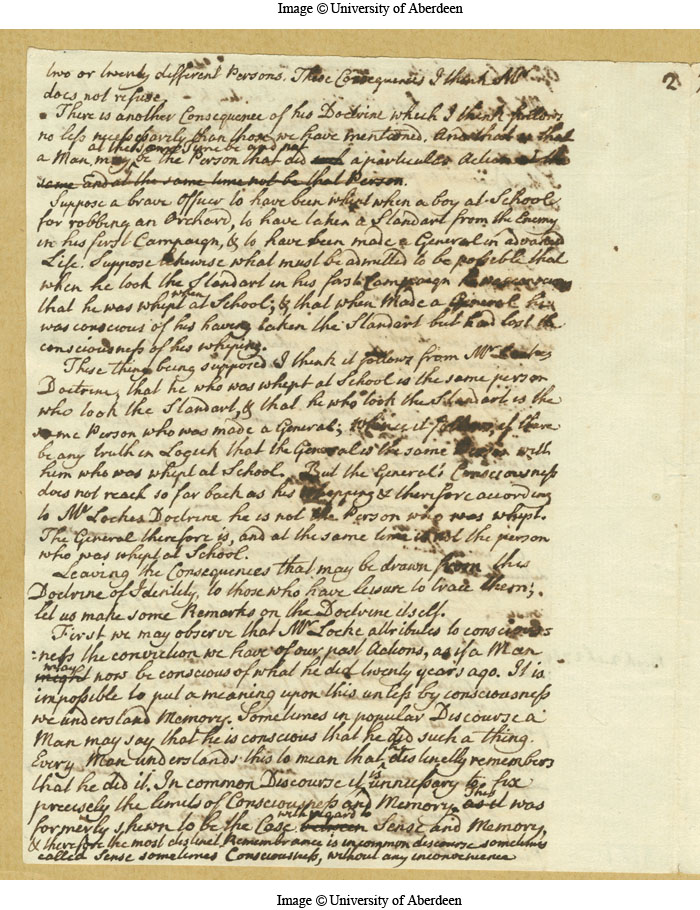 Image © University of Aberdeen
2
two or twenty different Persons. These Consequences I think Mr
does not refuse.
There is another Consequence of his Doctrine which I think follows
no less necessarily than those we have mentioned. And that is that
at the same Time be and not
a Man may be the Person that did such a particular Action
same and at the same time not be that Person.
Suppose a brave Officer to have been whipt when a boy at School
for robbing an Orchard, to have taken a Standart from the Enemy
in his first Campaign, & to have been made a General in advanced
Life. Suppose likewise what must be admitted to be possible that
when he took the Standart in his first Campaign he was conscious
that he was whipt at School; & that when Made a General he
when
was conscious of his having taken the Standart but had lost the
consciousness of his whiping.
These things being supposed I think it follows from Mr Lockes
Doctrine, that he who was whipt at School is the same person
who took the Standart, & that he who took the Standart is the
same Person who was made a General; Whence it follows, if there
be any truth in Logick that the General is the same Person with
him who was whipt at School. But the General's Consciousness
does not reach so far back as his Whipping & therefore according
to Mr Lockes Doctrine he is not the Person who was whipt.
The General therefore is, and at the same time is not the person
who was whipt at School.
Leaving the Consequences that may be drawn from this
Doctrine of Identity, to those who have leisure to trace them;
let us make some Remarks on the Doctrine itself.
First we may observe that Mr Locke attributes to conscious-
:ness the conviction we have of our past Actions, as if a Man
may
might now be conscious of what he did twenty years ago. It is
impossible to put a meaning upon this unless by consciousness
we understand Memory. Sometimes in popular Discourse a
Man may say that he is conscious that he did such a thing.
Every Man understands this to mean that he distinctly remembers
that he did it. In common Discourse it is unnessary to fix
precisely the limits of Consciousness and Memory. as it was
This
formerly shewn to be the Case between Sense and Memory,
with regard to
& therefore the most distinct Remembrance is in common discourse sometimes
called Sense sometimes Consciousness, without any inconvenience
Image © University of Aberdeen